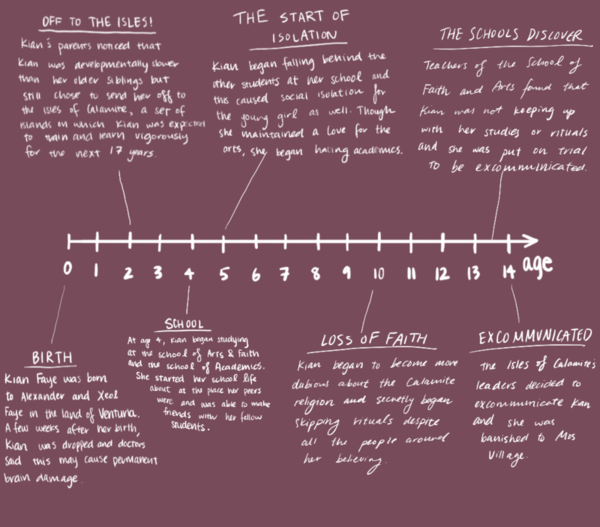 OFF TO THE ISLES!
Kian's parents noticed that
Kian was developmentally slower
than her older siblings but
still chose to send her off to
the isles of Calamite, a set of
islands in which Kian was expected
to train and learn vigorously
for the next 17 years.
THE START OF
ISOLATION
Kian began falling behind the
other students at her school and
this caused social isolation for
the young girl as well. Though
she maintained a love for the
arts, she began hating academics.
THE SCHOOLS DISCOVER
Teachers of the School of
Faith and Arts found that
Kian was not keeping up
with her studies or rituals
and she was put on trial
to be excommunicated.
0 1 2 3 4 5 6 7 8 9 10 11 12 13 14 age
BIRTH
Kian Faye was born
to Alexander and Xeol
Faye in the land of Ventuna.
A few weeks after her birth,
Kian was dropped and doctors
said this may cause permanent
brain damage.
SCHOOL
At age 4, Kian began studying
at the school of Arts & Faith
and the school of Academics.
She started her school life
about at the pace her peers
were and was able to make
friends with her fellow
students.
LOSS OF FAITH
Kian began to become more
dubious about the Calamite
religion and secretly began
skipping rituals despite
all the people around
her believing.
EXCOMMUNICATED
The Isles of Calamite's
leaders decided to
excommunicate Kian
and she was
banished to Mos
Village.